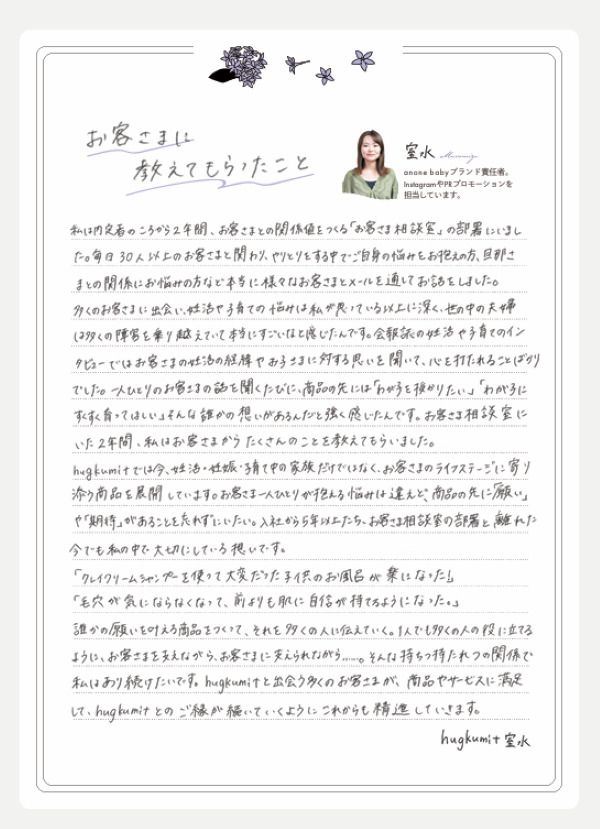 お客さまに
教えてもらったこと
室水
anone babyブランド責任者。
InstagramやPRプロモーションを
担当しています。
私は内定者のころから2年間、お客さまとの関係値をつくる「お客さま相談室」の部署にいまし
た。毎日30人以上のお客さまと関わり、やりとりをする中でご自身の悩みをお抱えの方、旦那さ
まとの関係にお悩みの方など本当に様々なお客さまとメールを通してお話をしました。
多くのお客さまに出会い、妊活や子育ての悩みは私が思っている以上に深く、世の中の夫婦
は多くの障害を乗り越えていて本当にすごいなと感じたんです。会報誌の妊活や子育てのイン
タビューではお客さまの妊活の経緯やお子さまに対する思いを聞いて、心を打たれることばかり
でした。一人ひとりのお客さまの話を聞くたびに、商品の先には「わが子を授かりたい」「わが子に
すくすく育ってほしい」そんな誰かの想いがあるんだと強く感じたんです。お客さま相談室に
いた2年間、私はお客さまからたくさんのことを教えてもらいました。
hugkumi+では今、妊活・妊娠・子育て中の家族だけではなく、お客さまのライフステージに寄り
添う商品を展開しています。お客さま一人ひとりが抱える悩みは違えど、商品の先に「願い」
や「期待」があることを忘れずにいたい。入社から5年以上たち、お客さま相談室の部署と離れた
今でも私の中で大切にしている想いです。
「クレイクリームシャンプーを使って大変だった子供のお風呂が楽になった!」
「毛穴が気にならなくなって、前よりも肌に自信が持てるようになった。」
誰かの願いを叶える商品をつくって、それを多くの人に伝えていく。1人でも多くの人の役に立てる
ように、お客さまを支えながら、お客さまに支えられながら……。そんな持ちつ持たれつの関係で
私はあり続けたいです。hugkumi+と出会う多くのお客さまが、商品やサービスに満足
して、hugkumi+とのご縁が続いていくようにこれからも精進していきます。
hugkumi+ 室水